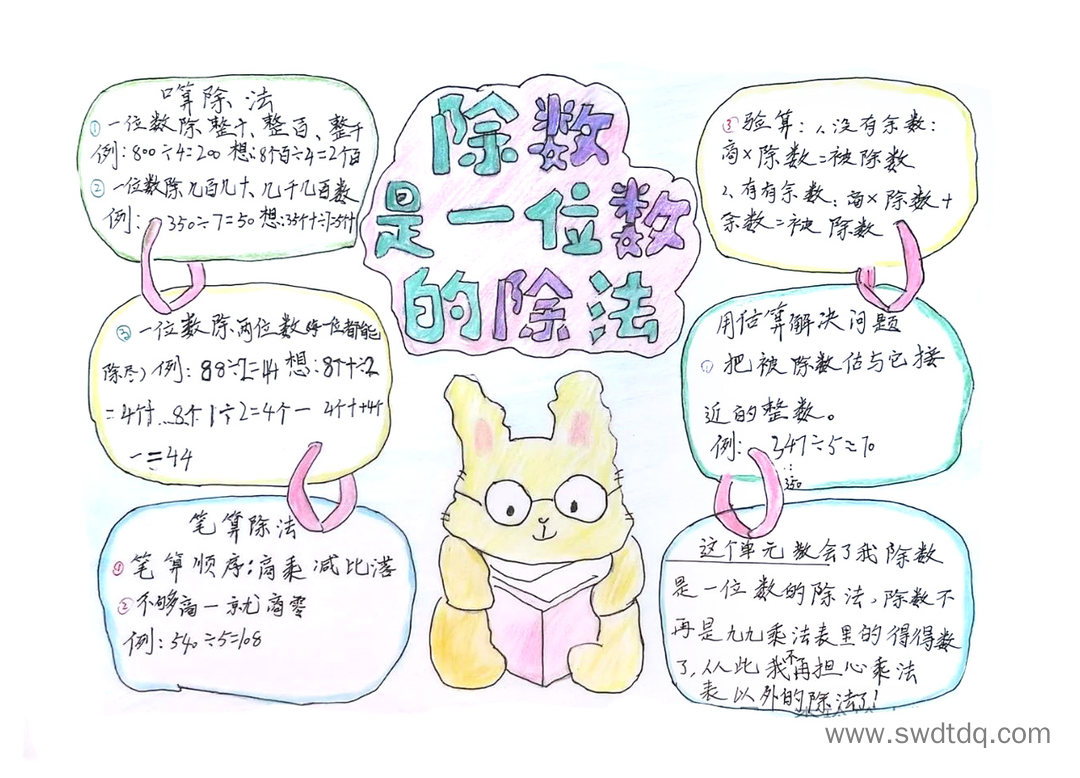 除数
是一位数
的除法
口算除法
①一位数除整十、整百、整千
例:800÷4=200 想:8个百÷4=2个百
②一位数除几百几十、几千几百数
例: 350÷7=50 想:35个十÷7=5个十
③一位数除两位数(每一位都能
除尽) 例:88÷2=44 想:8个十÷2
=4个十...8个1÷2=4个一 4个十+4个
一=44
笔算除法
①笔算顺序:商乘减比落
②不够商一就商零
例:540÷5=108
③验算:1、没有余数:
商×除数=被除数
2、有有余数:商×除数+
余数=被除数
用估算解决问题
①把被除数估与它接
近的整数。
例: 347÷5≈70
350
这个单元教会了我除数
是一位数的除法,除数不
再是九九乘法表里的得得数
了,从此我不再担心乘法
表以外的除法了!
www.swdtdq.com